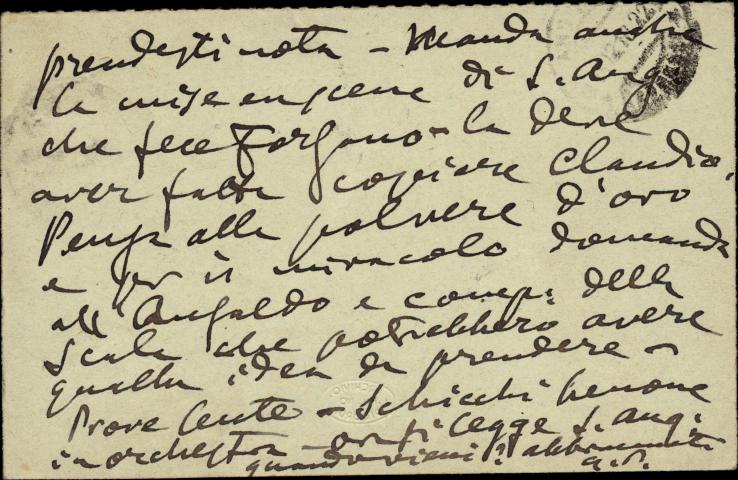 prendesti nota - Manda anche
la mise en scene di S. Ang.
che fece Forzano - la deve
aver fatta copiare Claudio.
Pensa alla polvere d'oro
e per il miracolo domanda
all'Ansaldo e comp: della
Scala che potrebbero avere
qualche idea da prendere -
Prove lente - Schicchi benone
in orchestra - ora si legge S. Ang:
quando vieni? abbracciati
G. P.